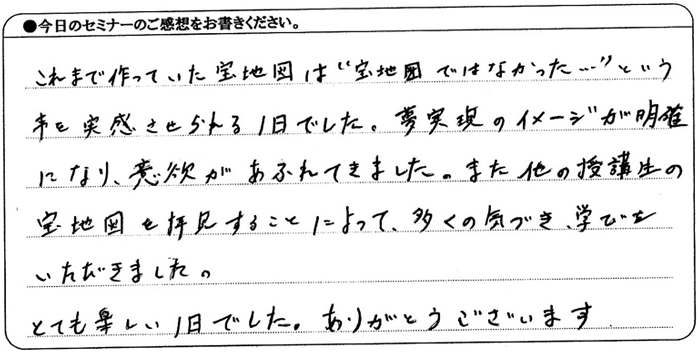 ●今日のセミナーのご感想をお書きください。
これまで作っていた宝地図は“宝地図ではなかった…”という
事を実感させられる1日でした。夢実現のイメージが明確
になり、意欲があふれてきました。また他の授講生の
宝地図を拝見することによって、多くの気づき、学びを
いただきました。
とても楽しい1日でした。ありがとうございます